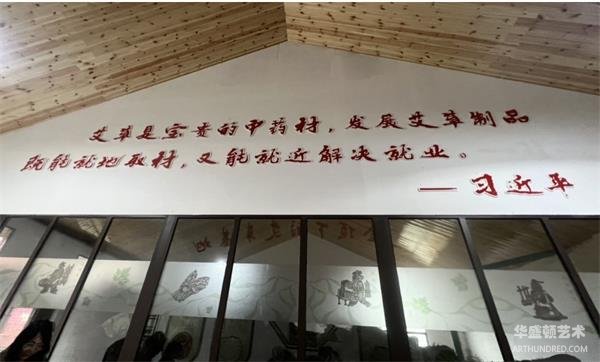 艾草是宝贵的中药材，发展艾草制品
既能就地取材，又能就近解决就业。
——习近平
华盛顿艺术
ARTHUNDRED.COM